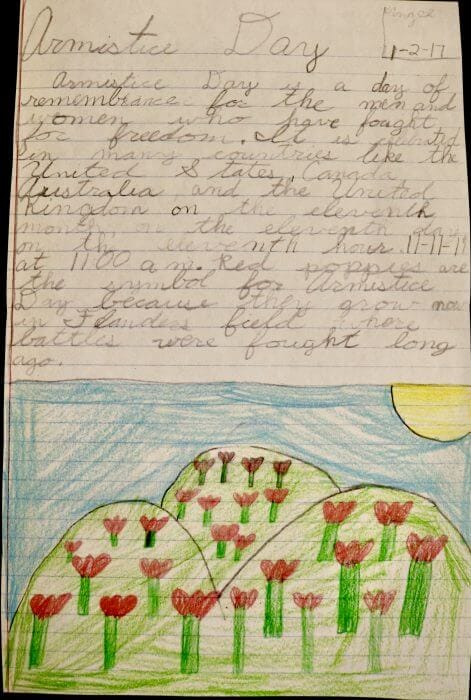 Armistice Day
11-2-17
Armistice Day is a day of
remembrance for the men and
women who have fought
for freedom. It is celebrated
in many countries like the
United States, Canada,
Australia and the United
Kingdom on the eleventh
month, on the eleventh day
on the eleventh hour. 11-11-11
at 11:00 a.m. Red poppies are
the symbol for Armistice
Day because they grow now
in Flanders field where
battles were fought long
ago.